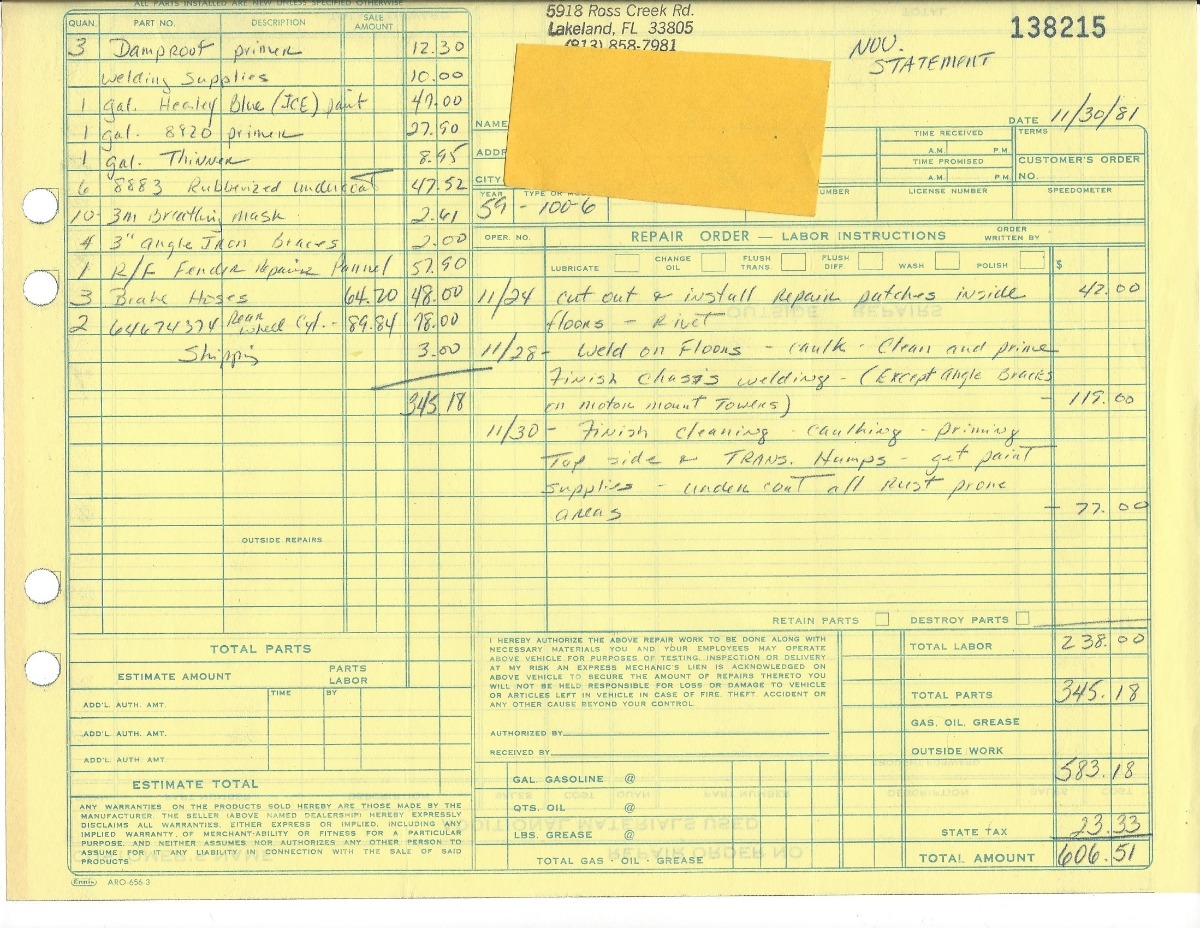 ALL PARTS INSTALLED ARE NEW UNLESS SPECIFIED OTHERWISE
5918 Ross Creek Rd.
Lakeland, FL 33805
(813) 858-7981
138215
NOV.
STATEMENT
QUAN. PART NO. DESCRIPTION SALE AMOUNT
3 Damproof primer 12.30
welding supplies 10.00
1 gal. Healey Blue (ICE) paint 47.00
1 gal. 8920 primer 27.90
1 gal. Thinner 8.95
6 8883 Rubberized undercoat 47.52
10- 3m Breathing mask 2.61
4 3" angle Iron Braces 2.00
1 R/F Fender Repair Pannel 57.90
3 Brake Hoses 64.20 48.00
2 64674374 Rear wheel Cyl. - 89.84 78.00
Shipping 3.00
345.18
OUTSIDE REPAIRS
NAME
ADD
CITY
DATE 11/30/81
TIME RECEIVED
A.M. P.M.
TIME PROMISED
A.M. P.M.
TERMS
CUSTOMER'S ORDER
NO.
YEAR TYPE OR MO UMBER LICENSE NUMBER SPEEDOMETER
59 - 100-6
OPER. NO. REPAIR ORDER — LABOR INSTRUCTIONS ORDER WRITTEN BY
LUBRICATE CHANGE OIL FLUSH TRANS. FLUSH DIFF WASH POLISH $
11/24 cut out & install repair patches inside 42.00
floors - Rivet
11/28 - Weld on Floors - caulk - Clean and prime
Finish Chassis welding - (Except Angle Braces
on motor mount Towers) - 119.00
11/30 - Finish cleaning - caulking - priming
Top side & TRANS. Humps - get paint
supplies - under coat all Rust prone
areas - 77.00
RETAIN PARTS DESTROY PARTS
TOTAL PARTS
ESTIMATE AMOUNT PARTS LABOR
TIME BY
ADD'L. AUTH. AMT.
ADD'L. AUTH. AMT.
ADD'L. AUTH. AMT.
ESTIMATE TOTAL
ANY WARRANTIES ON THE PRODUCTS SOLD HEREBY ARE THOSE MADE BY THE
MANUFACTURER. THE SELLER (ABOVE NAMED DEALERSHIP) HEREBY EXPRESSLY
DISCLAIMS ALL WARRANTIES, EITHER EXPRESS OR IMPLIED, INCLUDING ANY
IMPLIED WARRANTY, OF MERCHANT-ABILITY OR FITNESS FOR A PARTICULAR
PURPOSE, AND NEITHER ASSUMES NOR AUTHORIZES ANY OTHER PERSON TO
ASSUME FOR IT ANY LIABILITY IN CONNECTION WITH THE SALE OF SAID
PRODUCTS
Ennis ARO-656-3
I HEREBY AUTHORIZE THE ABOVE REPAIR WORK TO BE DONE ALONG WITH
NECESSARY MATERIALS YOU AND YOUR EMPLOYEES MAY OPERATE
ABOVE VEHICLE FOR PURPOSES OF TESTING, INSPECTION OR DELIVERY
AT MY RISK AN EXPRESS MECHANIC'S LIEN IS ACKNOWLEDGED ON
ABOVE VEHICLE TO SECURE THE AMOUNT OF REPAIRS THERETO YOU
WILL NOT BE HELD RESPONSIBLE FOR LOSS OR DAMAGE TO VEHICLE
OR ARTICLES LEFT IN VEHICLE IN CASE OF FIRE, THEFT, ACCIDENT OR
ANY OTHER CAUSE BEYOND YOUR CONTROL.
AUTHORIZED BY
RECEIVED BY
GAL. GASOLINE @
QTS. OIL @
LBS. GREASE @
TOTAL GAS - OIL - GREASE
TOTAL LABOR 238.00
TOTAL PARTS 345.18
GAS, OIL, GREASE
OUTSIDE WORK
583.18
STATE TAX 23.33
TOTAL AMOUNT 606.51